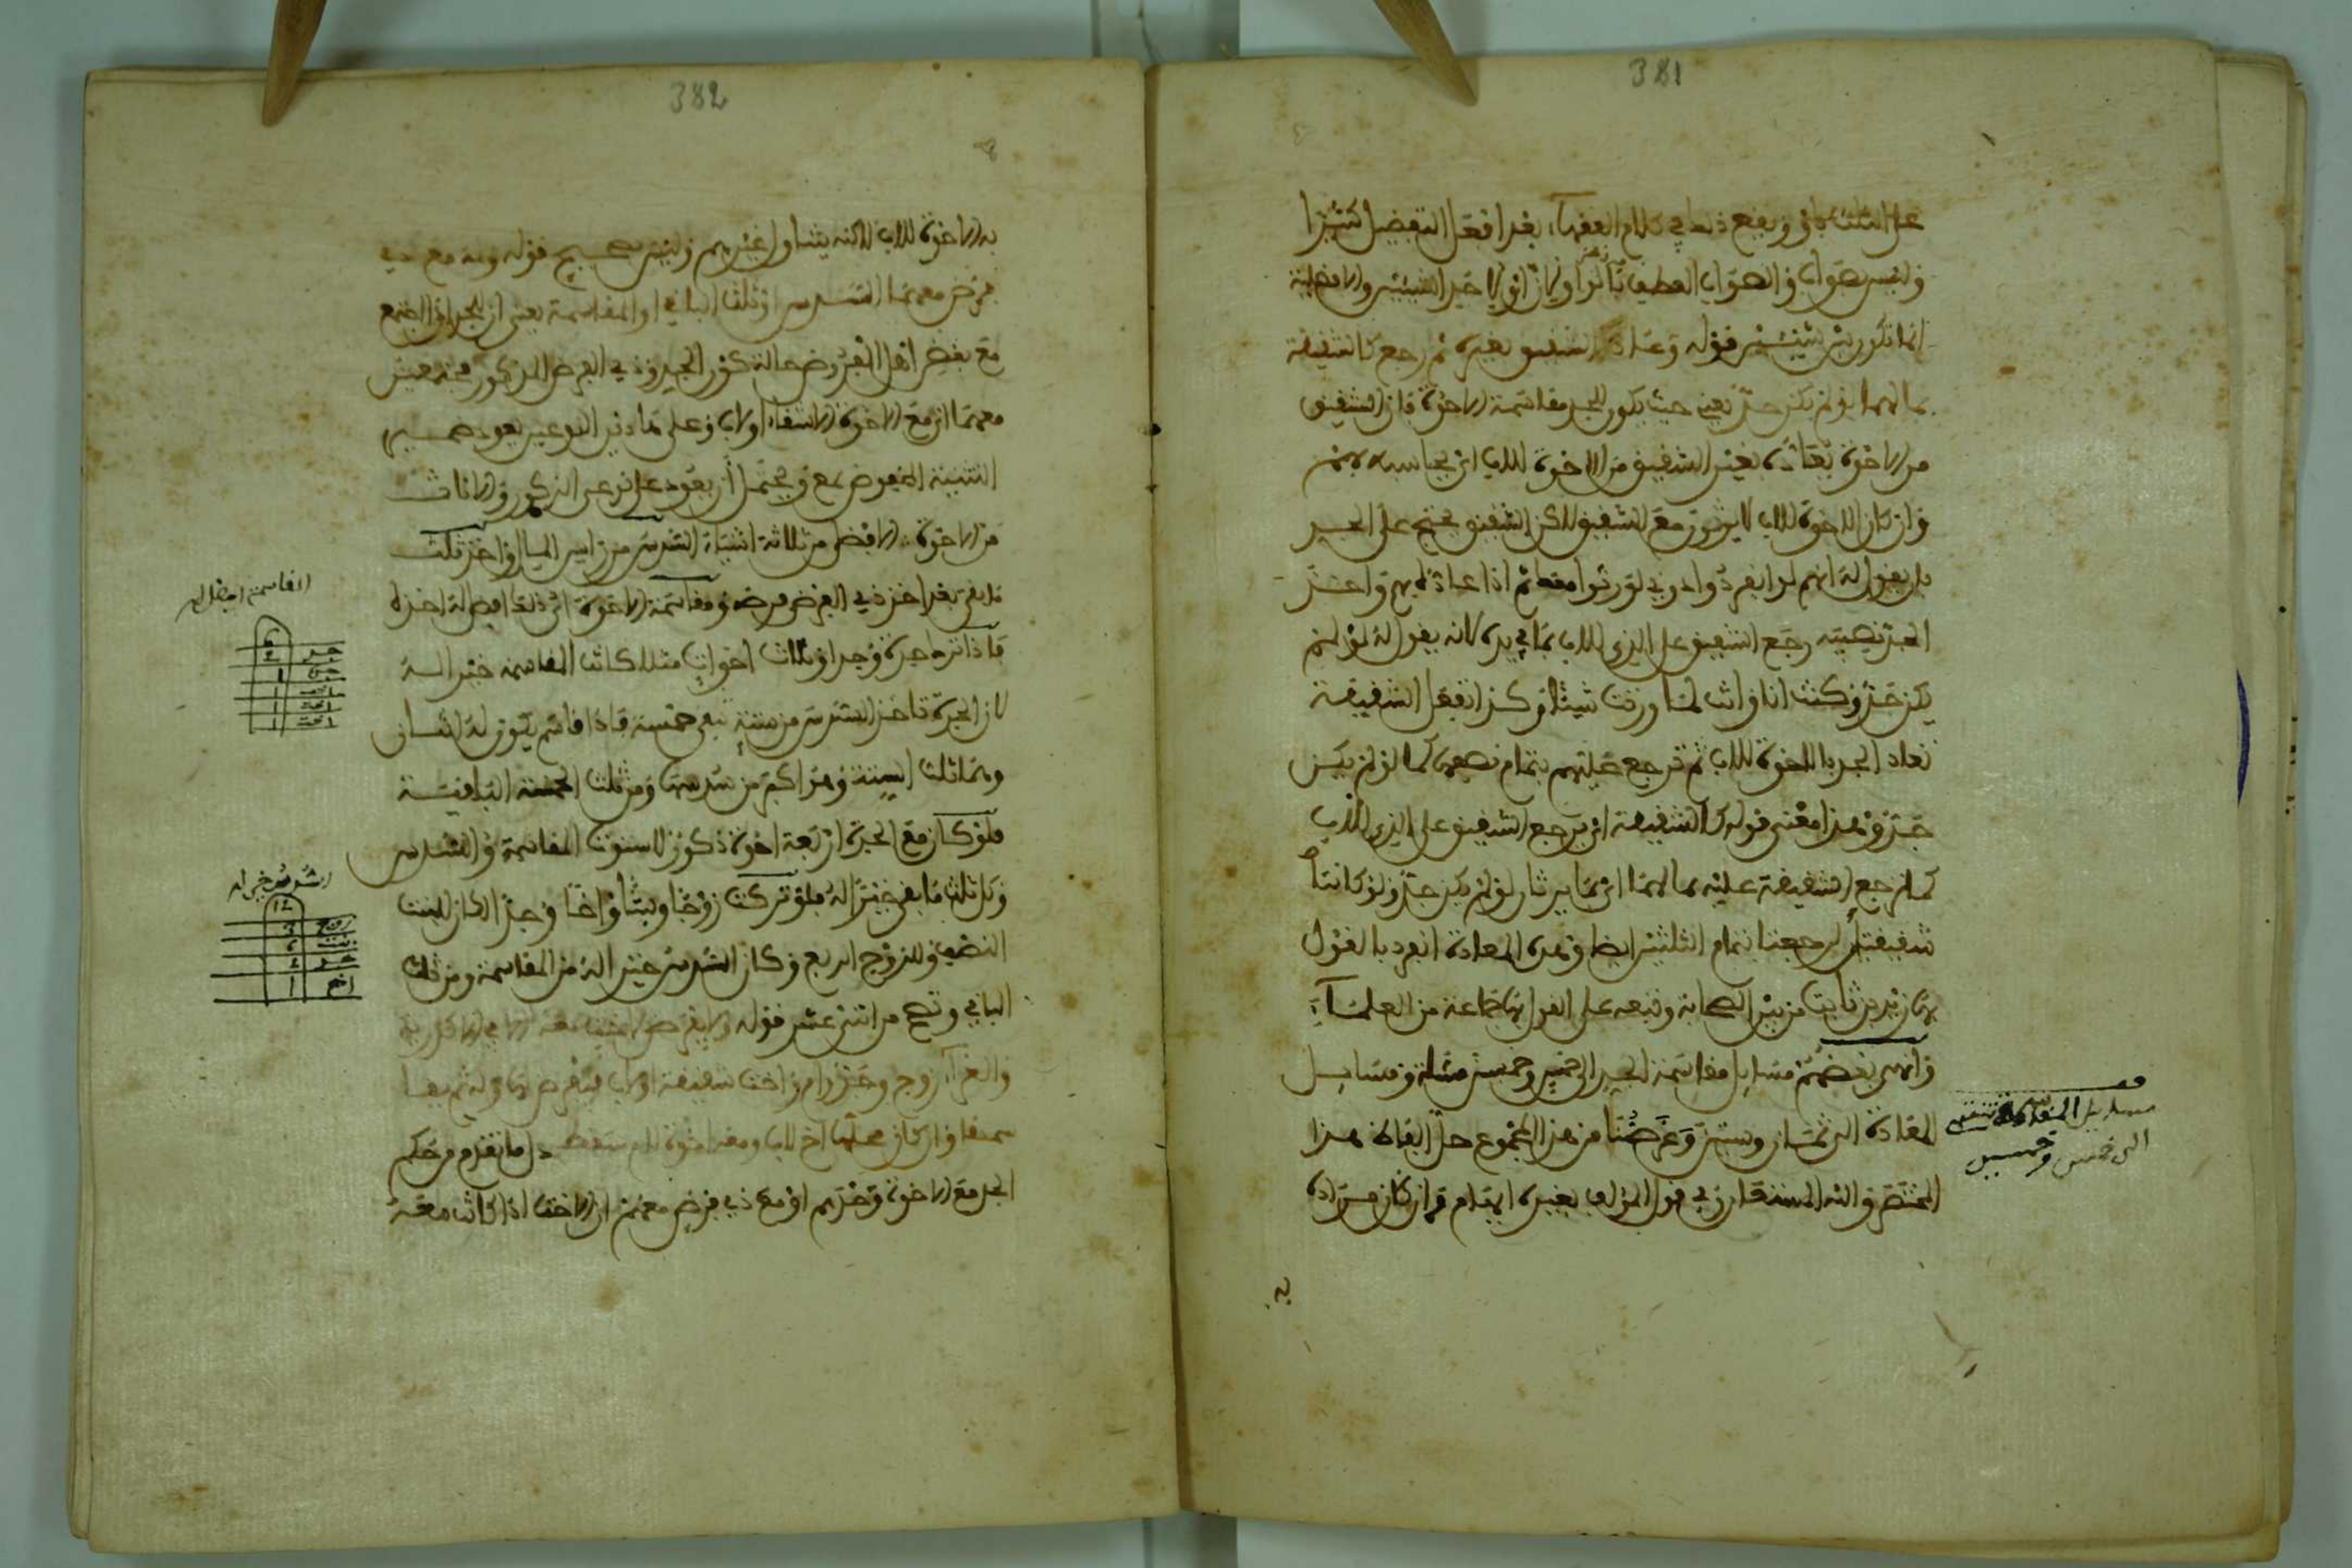 381
على الثلث باو ويقع ذلك في كلام الفقهاء بعد افعل التفضيل كثيرا
وليس بصواب والصواب العطف بالواو لان او لاحد الشيئين والافضلية
انما تكون بين شيئين قوله وعاد الشقيق بغيره ثم رجع كالشقيقة
بما لها لو لم يكن جد يعني حيث يكون للجد مقاسمة الاخوة فان الشقيق
من الاخوة يعاده بغير الشقيق من الاخوة للاب اي يحاسبه بهم
وان كان الاخوة للاب لا يرثون مع الشقيق لكن الشقيق يحتج على الجد
بان يقول له انهم لو انفردوا دوني لورثوا معك ثم اذا عاده بهم واخذ
الجد نصيبه رجع الشقيق على الذي للاب بما في يده لانه يقول له لو لم
يكن جد وكنت انا وانت لما ورثت شيئا وكذا تفعل الشقيقة
تعاد الجد بالاخوة للاب ثم ترجع عليهم بتمام نصفها كما لو لم يكن
جد وهذا معنى قوله كالشقيقة اي يرجع الشقيق على الذي للاب
كما ترجع الشقيقة عليه بما لها اي بما يرثان لو لم يكن جد ولو كانتا
شقيقتين لرجعتا بتمام الثلثين ايضا وهذه المعادة انفرد بالقول
بها زيد بن ثابت من بين الصحابة وتبعه على القول بها جماعة من العلماء
وانهى بعضهم مسايل مقاسمة الجد الى خمس وخمسين مسئلة ومسايل
المعادة الى ثمان وستين وغرضنا من هذا المجموع حل الفاظ هذا
المختصر والله المستعان وفي قول المؤلف بغيره ايهام وان كان مراده
به
مسايل المقاسمة تنتهي
الى خمس وخمسين
382
به الاخوة للاب لاكنه يتناول غيرهم وليس بصحيح قوله وله مع ذي
فرض معهما السدس او ثلث الباقي او المقاسمة يعني ان الجد اذا اجتمع
مع بعض اهل الفروض حالة كون الجد وذي الفرض المذكور مجتمعين
معهما اي مع الاخوة الاشقاء او لاب وعلى هاذين النوعين يعود ضمير
التثنية المخفوض بمع ويحتمل ان يعود على نوعي الذكور والاناث
من الاخوة الافضل من ثلاثة اشياء السدس من راس المال او اخذ ثلث
ما بقي بعد اخذ ذي الفرض فرضه ومقاسمة الاخوة اي ذلك افضل له اخذه
فاذا ترك جدة وجدا وثلاث اخوات مثلا كانت المقاسمة خيرا له
لان الجدة تاخذ السدس من ستة تبقى خمسة فاذا قاسم يكون له اثنان
وهما ثلث الستة وهو اكثر من سدسها ومن ثلث الخمسة الباقية
فلو كان مع الجدة اربعة اخوة ذكور لاستوت المقاسمة والسدس
وكان ثلث ما بقي خيرا له فلو تركت زوجا وبنتا واخا وجدا لكان للبنت
النصف وللزوج الربع وكان السدس خيرا له من المقاسمة ومن ثلث
الباقي وتصح من اثني عشر قوله ولا يفرض لاخت معه الا في الاكدرية
والغراء زوج وجد وام واخت شقيقة او لاب فيفرض لها وله ثم يقا
سمها وان كان محلها اخ لاب ومعه اخوة لام سقط دل ما تقدم من حكم
الجد مع الاخوة وحدهم او مع ذي فرض معهم ان الاخت اذا كانت معه
المقاسمة افضل له
6
جد 2
جدة 1
اخت 1
اخت 1
اخت 1
السدس خير له
12
زوج 3
بنت 6
جد 2
اخ 1